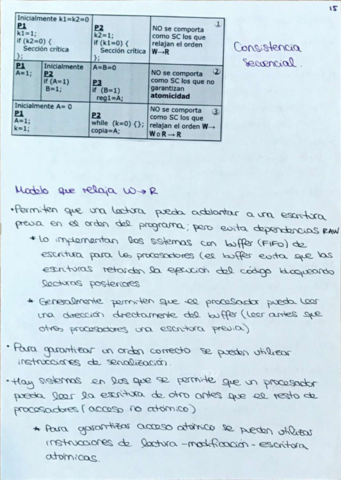 15
Inicialmente k1=k2=0
P1
k1=1;
if (k2=0) {
Sección crítica
};
P2
k2=1;
if (k1=0) {
Sección crítica
};
NO se comporta
como SC los que
relajan el orden
W→R
1
P1
A=1;
Inicialmente
P2
if (A=1)
B=1;
A=B=0
P3
if (B=1)
reg1=A;
NO se comporta
como SC los que no
garantizan
atomicidad
2
Inicialmente A= 0
P1
A=1;
k=1;
P2
while (k=0) {};
copia=A;
NO se comporta
como SC los que
relajan el orden W→
W o R→R
3
Consistencia
Secuencial.
Modelo que relaja W→R
• Permiten que una lectura pueda adelantar a una escritura
previa en el orden del programa; pero evita dependencias RAW
* Lo implementan los sistemas con buffer (FIFO) de
escritura para los procesadores (el buffer evita que las
escrituras retarden la ejecución del código bloqueando
lecturas posteriores
* Generalmente permiten que el procesador pueda leer
una dirección directamente del buffer (leer antes que
otros procesadores una escritura previa)
• Para garantizar un orden correcto se pueden utilizar
instrucciones de serialización.
• Hay sistemas en los que se permite que un procesador
pueda leer la escritura de otro antes que el resto de
procesadores (acceso no atómico)
* Para garantizar acceso atómico se pueden utilizar
instrucciones de lectura-modificación-escritura
atómicas.